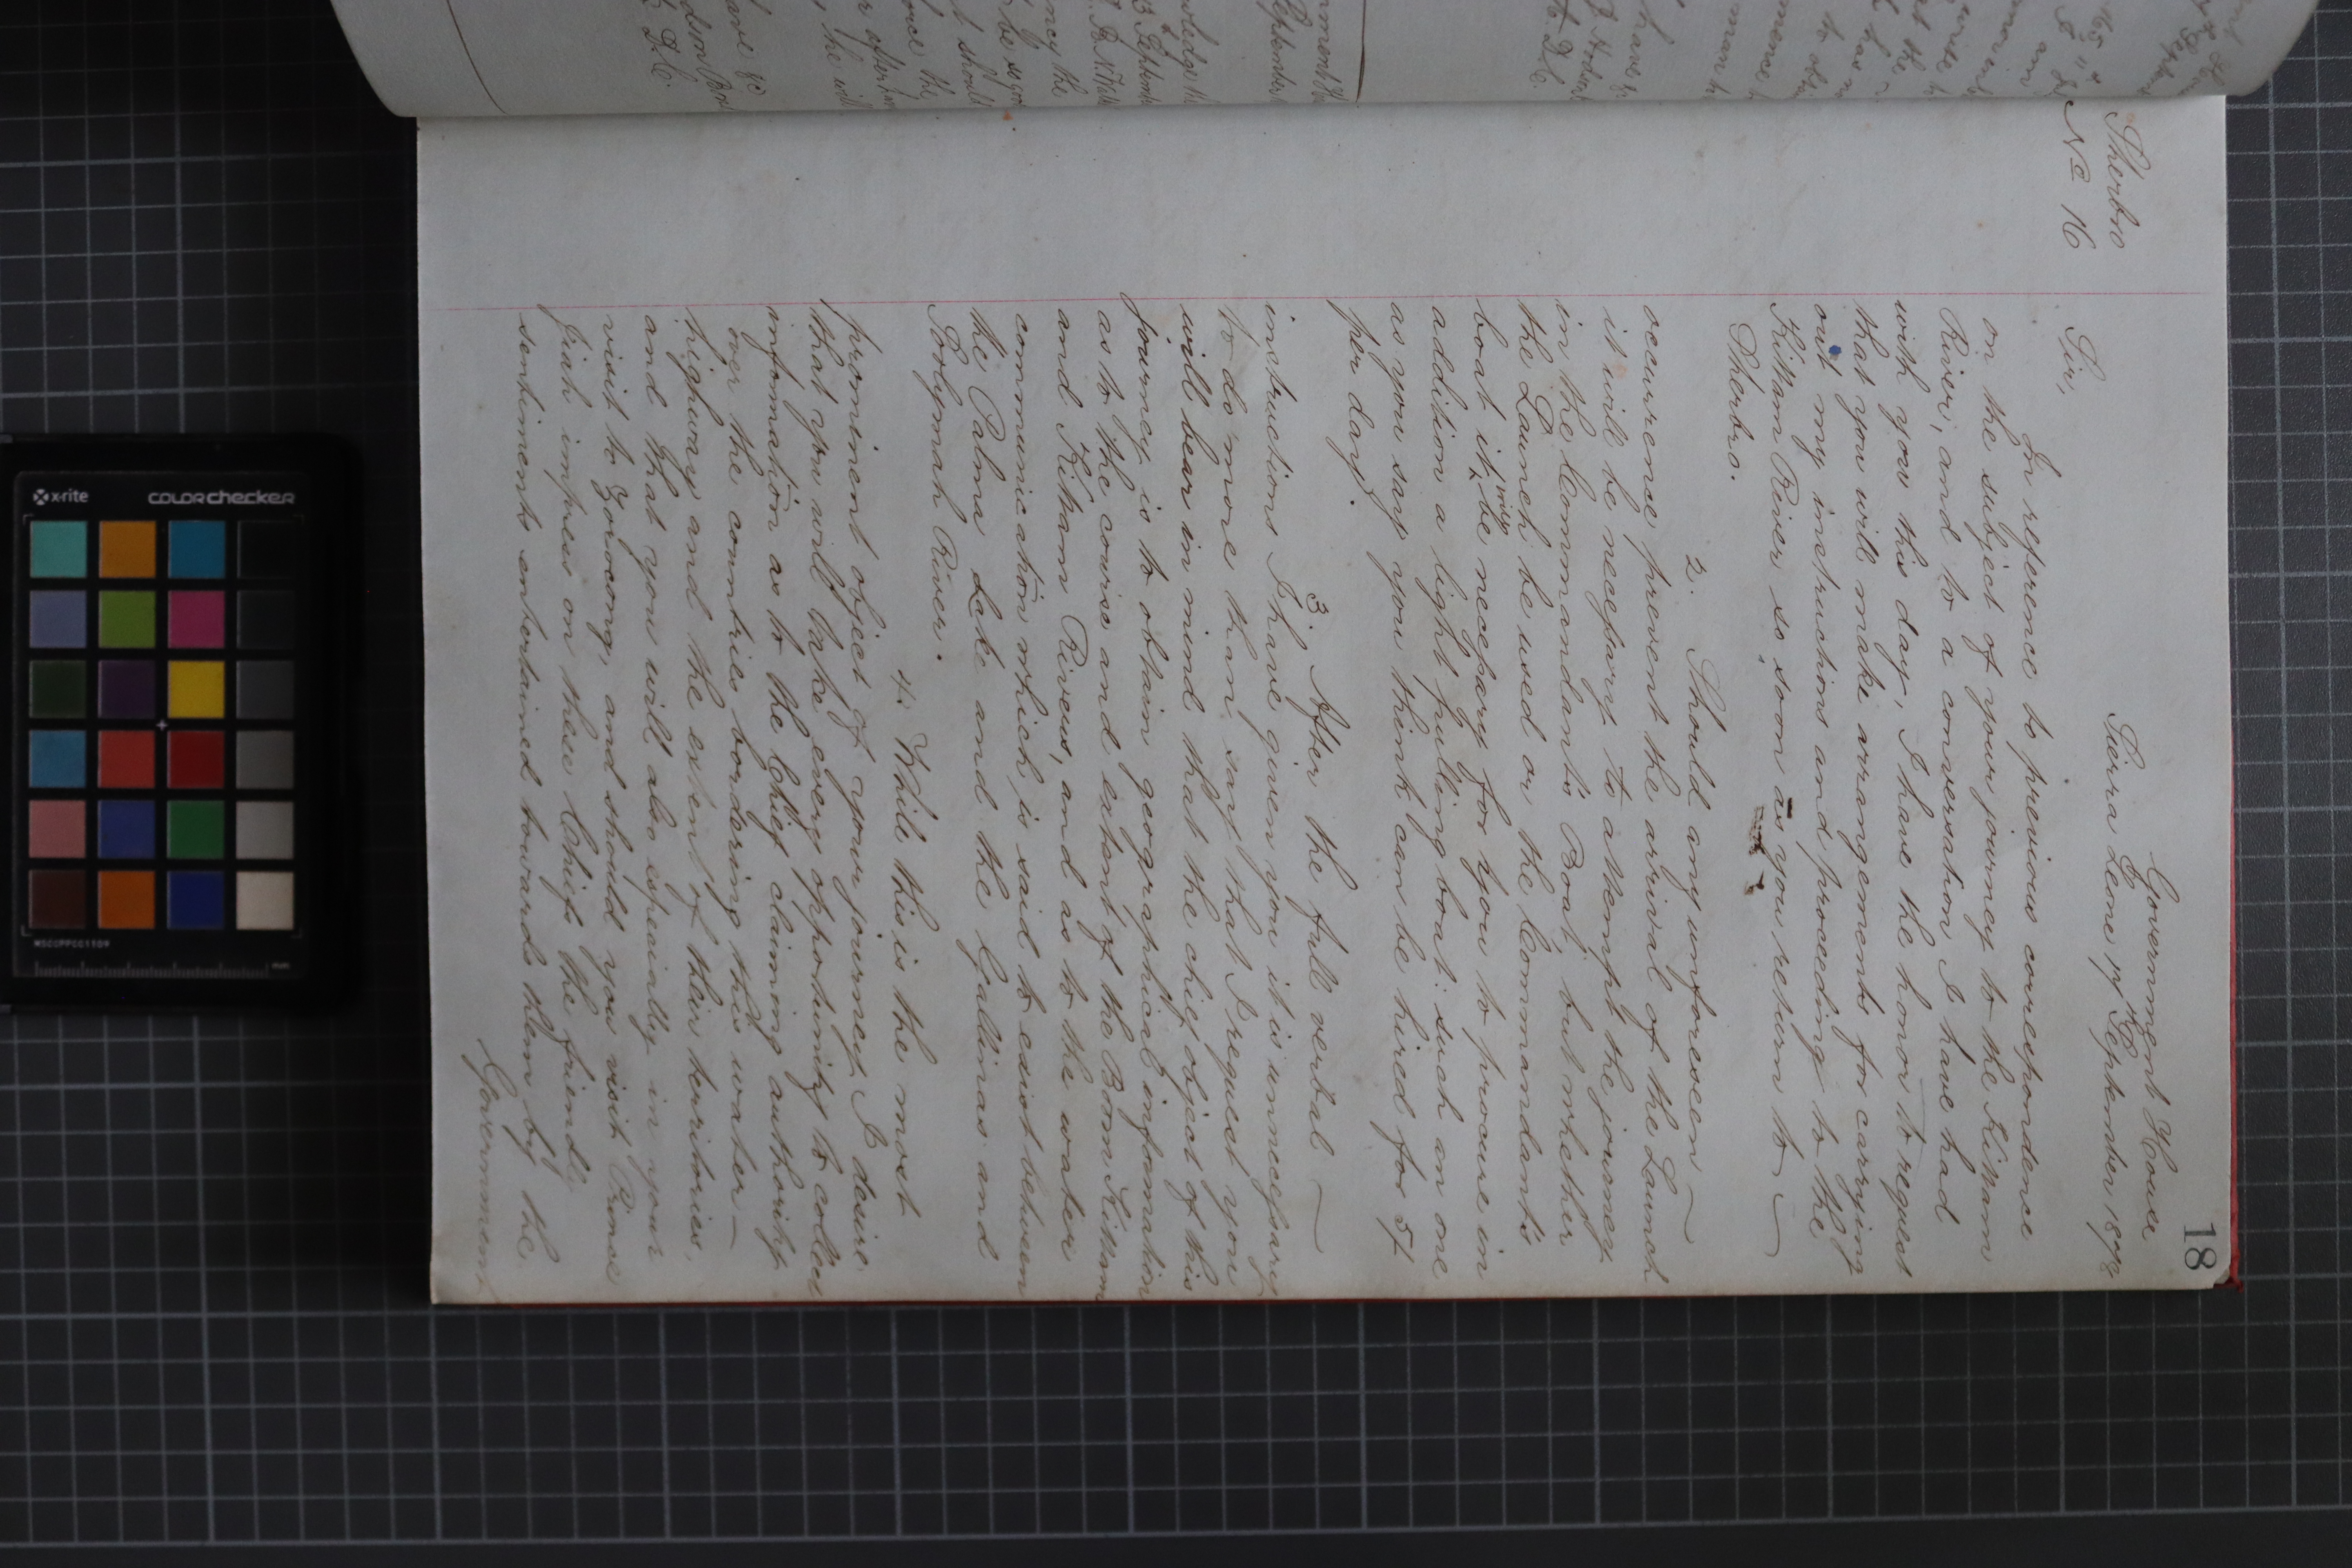 18
Government House
Sierra Leone 17th September 1878
Sherbro
No 16
Sir,
In reference to previous correspondence
on the subject of your journey to the Kittam
River, and to a conversation I have had
with you this day, I have the honor to request
that you will make arrangements for carrying
out my instructions and proceeding to the
Kittam River so soon as you return to
Sherbro.
2. Should any unforeseen
occurrence prevent the arrival of the Launch
it will be necessary to attempt the journey
in the Commandant's Boat, but whether
the Launch be used or the Commandant's
boat it will be necessary for you to procure in
addition a light pulling boat: such an one
as you say you think can be hired for 5/
per day.
3. After the full verbal
instructions I have given you it is unnecessary
to do more than say that I request you
will bear in mind that the chief object of this
journey is to obtain geographical information
as to the course and extent of the Bom Kittam
and Kittam Rivers, and as to the water
communication which is said to exist between
the Palma Lake and the Gallinas and
Solymah River.
4. While this is the most
prominent object of your journey I desire
that you will take every opportunity to collect
information as to the Chiefs claiming authority
over the countries bordering this water-
highway and the extent of their territories,
and that you will also especially in your
visit to and should you visit Prince
Jiah impress on these Chiefs the friendly
sentiments entertained towards them by the
Government
x-rite
colorchecker
MSCCPPCC1109